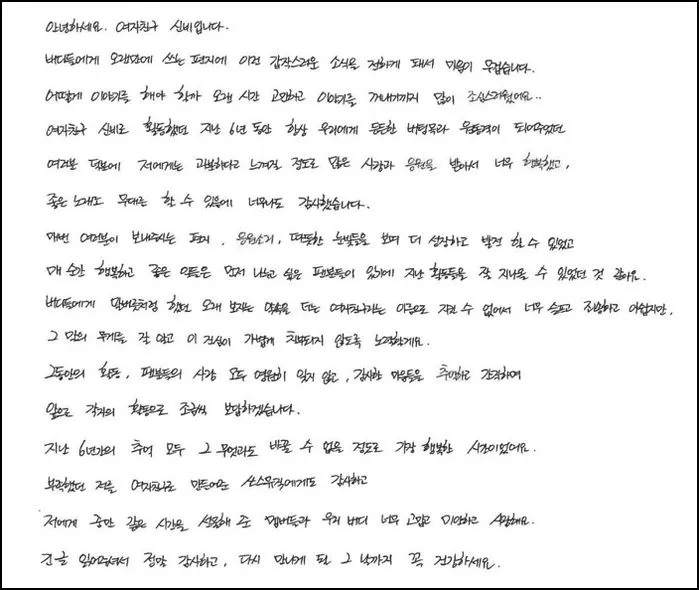 안녕하세요. 여자친구 신비입니다.
버디들에게 오랜만에 쓰는 편지에 이런 갑작스러운 소식을 전하게 돼서 마음이 무겁습니다.
어떻게 이야기를 해야 할까 오랜 시간 고민하고 이야기를 꺼내기까지 많이 조심스러웠어요..
여자친구 신비로 활동했던 지난 6년 동안 항상 우리에게 든든한 버팀목과 원동력이 되어주었던
여러분 덕분에 저에게는 과분하다고 느껴질 정도로 많은 사랑과 응원을 받아서 너무 행복했고,
좋은 노래로 무대를 할 수 있음에 너무나도 감사했습니다.
매번 여러분이 보내주시는 편지, 응원소리, 따뜻한 눈빛들을 보며 더 성장하고 발전 할 수 있었고
매 순간 행복하고 좋은 것들은 먼저 나누고 싶은 팬분들이 있기에 지난 활동들을 잘 지나올 수 있었던 것 같아요.
버디들에게 말버릇처럼 했던 오래 보자는 약속을 더는 여자친구라는 이름으로 지킬 수 없어서 너무 슬프고 죄송하고 아쉽지만,
그 말의 무게를 잘 알고 이 진심이 가볍게 치부되지 않도록 노력할게요.
그동안의 활동, 팬분들의 사랑 모두 영원히 잊지 않고, 감사한 마음들을 추억하고 간직하며
앞으로 각자의 활동으로 조금씩 보답하겠습니다.
지난 6년간의 추억 모두 그 무엇과도 바꿀 수 없을 정도로 가장 행복한 시간이었어요.
부족했던 저를 여자친구로 만들어준 쏘스뮤직에게도 감사하고
저에게 중반 같은 시간을 선물해 준 멤버들과 우리 버디 너무 고맙고 미안하고 사랑해요.
긴 글 읽어주셔서 정말 감사하고, 다시 만나게 될 그 날까지 꼭 건강하세요.